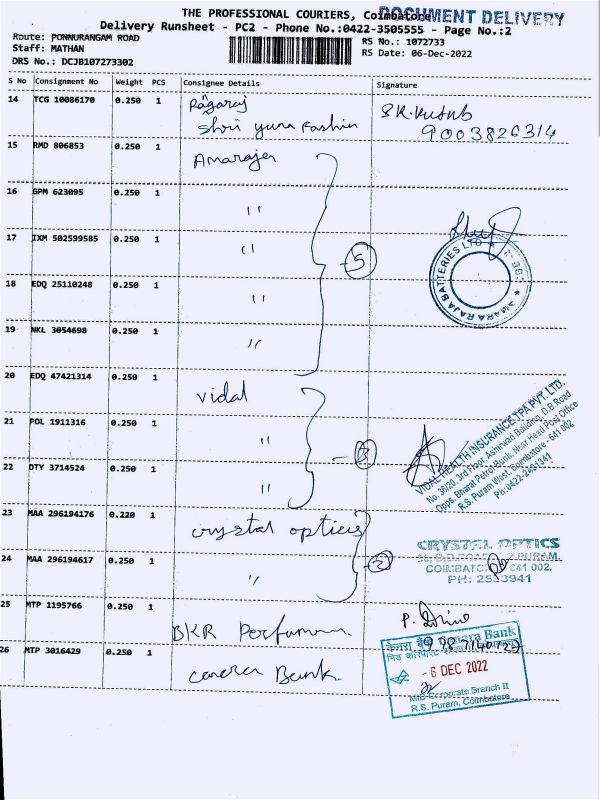 THE PROFESSIONAL COURIERS, Coimbatore
DOCUMENT DELIVERY
Delivery Runsheet - PC2 - Phone No.:0422-3505555 - Page No.:2
Route: PONNURANGAM ROAD
RS No.: 1072733
Staff: MATHAN
RS Date: 06-Dec-2022
DRS No.: DCJB107273302
S No Consignment No Weight PCS Consignee Details Signature
14 TCG 10086170 0.250 1 Ragaraj
Shri yuva Fashin
9003826314
15 RMD 806853 0.250 1 Amaraja
16 GPM 623095 0.250 1 "
17 IXM 502599585 0.250 1 "
5
AMARA RAJA BATTERIES LTD
18 EDQ 25110248 0.250 1 "
19 NKL 3054698 0.250 1 "
20 EDQ 47421314 0.250 1 vidal
21 POL 1911316 0.250 1 "
3
VIDAL HEALTH INSURANCE TPA PVT. LTD.
No. 3620, 3rd Floor, Ashirwad Building, D.B.Road
Opps Bharat Petrol Bunk, Near Head Post Office
R.S. Puram West, Coimbatore - 641 002
Ph:0422-2491341
22 DTY 3714524 0.250 1 "
23 MAA 296194176 0.220 1 crystal optics
CRYSTAL OPTICS
COIMBATORE 641 002.
PH: 2533941
24 MAA 296194617 0.250 1 "
2
25 MTP 1195766 0.250 1 BKR Perfumum
केनरा बैंक Canara Bank
26 MTP 3016429 0.250 1 canara Bank.
- 6 DEC 2022
Mid Corporate Branch II
R.S. Puram, Coimbatore